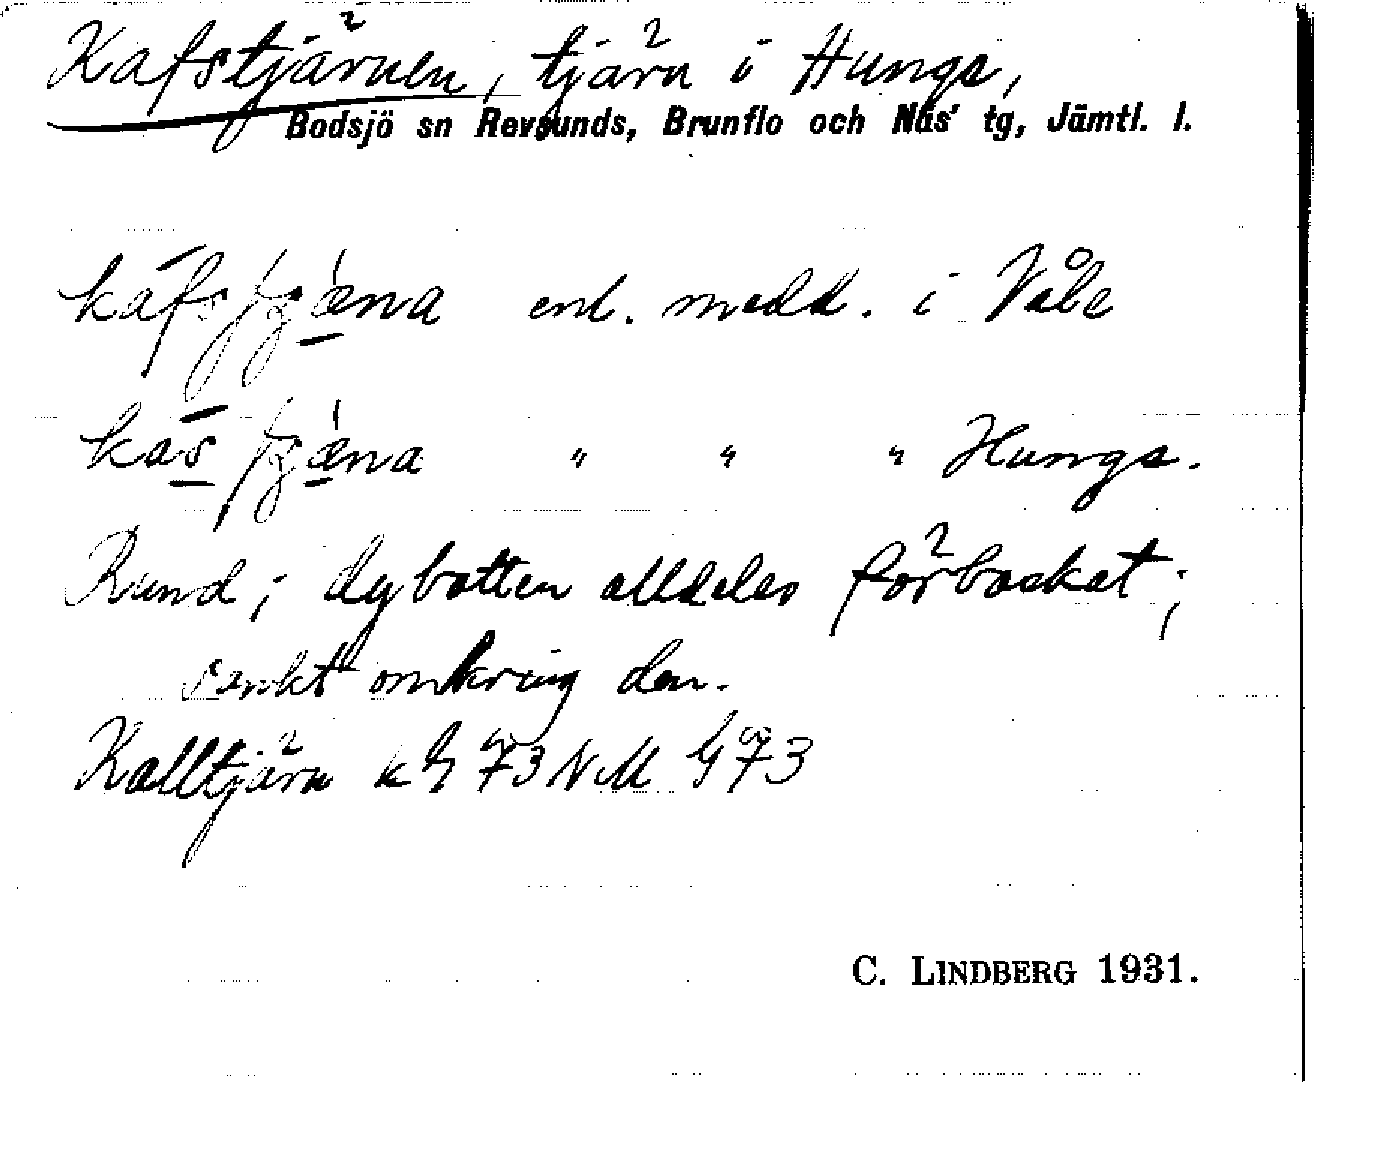 Kafstjärnen, tjärn i Hungs,
Bodsjö sn Revsunds, Brunflo och Näs' tg, Jämtl. l.
enl. medd. i Våle
" " " Hungs.
Rund; dybotten alldeles förbaskat;
sankt omkring den.
Kalltjärn
C. LINDBERG 1931.